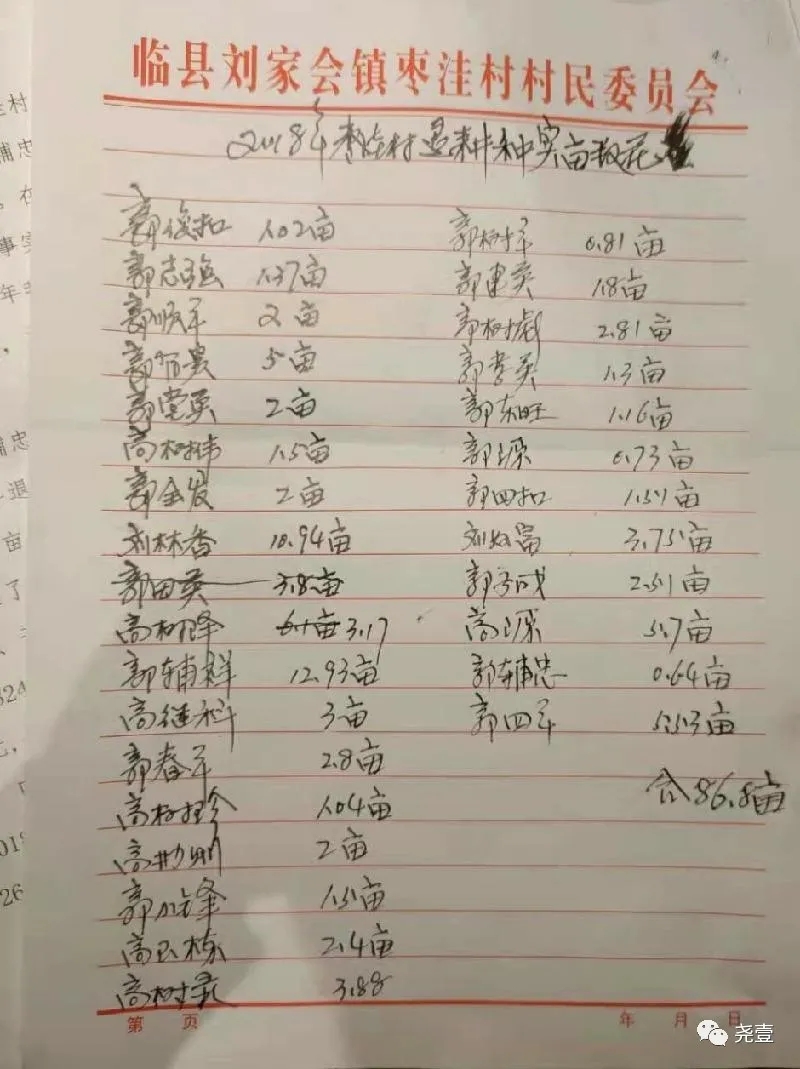 临县刘家会镇枣洼村村民委员会
2018年枣洼村退耕种实亩数花
郭俊扣 1.02亩 郭树军 0.81亩
郭志强 1.37亩 郭建英 1.8亩
郭顺军 2亩 郭树 2.81亩
郭 5亩 郭孝英 1.3亩
郭党英 2亩 郭东旺 1.16亩
高树伟 1.5亩 郭 0.73亩
郭全发 2亩 郭四扣 1.51亩
刘林香 10.94亩 刘 3.75亩
郭田英 3.8亩 郭 2.51亩
高树降 3.17 高 5.7亩
郭辅群 12.93亩 郭辅忠 0.64亩
高继科 3亩 郭四军 5.53亩
郭春军 2.8亩
合86.8亩
高树珍 1.04亩
高 2亩
郭 锋 1.51亩
高 栋 2.4亩
高树 3.88
第 页 年 月 日
尧壹
村
浦忠
事实
年
浦忠
退
亩
了
324
018
26